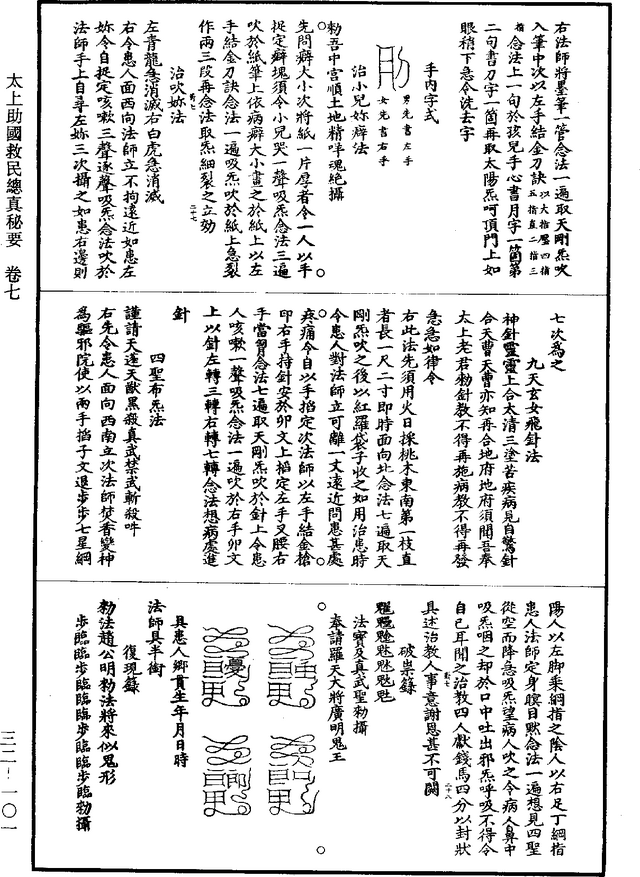 太上助國救民總真秘要 卷七
三二—一〇一
右法師將墨筆一管念法一遍取天剛炁吹
入筆中次以左手結金刀訣以大指壓四指五指直二指三
指念法上一句於孩兒手心書月字一箇第
二句書刀字一箇再取太陽炁呵頂門上如
眼稍下急令洗去字
手內字式
男先書左手
女先書右手
治小兒妳癖法
勑吾中宮順土地精咩魂絶攝
先問癖大小次將紙一片厚者令一人以手
捉定癖塊須令小兒哭一聲吸炁念法三遍
吹於紙筆上依病癖大小畫之於紙上以左
手結金刀訣念法一遍吸炁吹於紙上急裂
作兩三段再念法取炁細裂之立効
治吹妳法
左青龍急消滅右白虎急消滅
右令患人面西向法師立不拘遠近如患左
妳令自捉定咳嗽三聲逐聲吸炁念法吹於
法師手上自尋左妳三次攝之如患右邊則
七次為之
九天玄女飛針法
神針靈靈上合太清三塗苦疾病見自驚針
合天曹天曹亦知再合地府地府須聞吾奉
太上老君勑針教不得再施病教不得再發
急急如律令
右此法先須用火日採桃木東南第一枝直
者長一尺二寸即時面向北念法七遍取天
剛炁吹之後以紅羅袋子收之如用治患時
令患人對法師立可離一丈遠近問患甚處
疼痛令自以手掐定次法師以左手結金槍
印右手持針安於卯文上掐定左手叉腰右
手當胷念法七遍取天剛炁吹於針上令患
人咳嗽一聲吸炁念法一遍吹於右手卯文
上以針左轉三轉右轉七轉念法想病處進
針
四聖布炁法
謹請天蓬天猷黑殺真武禁武斬殺吽
右先令患人面向西南立次法師焚香變神
為驅邪院使以兩手掐子文退步步七星綱
陽人以左脚乘綱指之陰人以右足丁綱指
患人法師定身瞑目黙念法一遍想見四聖
從空而降急吸炁望病人吹之令病人鼻中
吸炁咽之却於口中吐出邪炁呼吸不得令
自己耳聞之治教四人獻錢馬四分以封狀
具述治教人事意謝恩甚不可闕
破祟籙
法寳及真武聖勑攝
奉請羅天大將廣明鬼王
具患人鄉貫生年月日時
法師具半銜
復現籙
勑法趙公明勑法將來似鬼形
步臨臨步臨臨臨步臨臨步臨勑攝